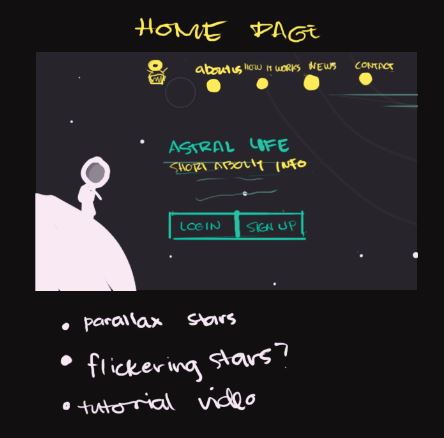 HOME PAGE
about us HOW IT WORKS NEWS CONTACT
ASTRAL LIFE
SHORT ABOUT INFO
LOGIN SIGN UP
• parallax stars
• flickering stars?
• tutorial video